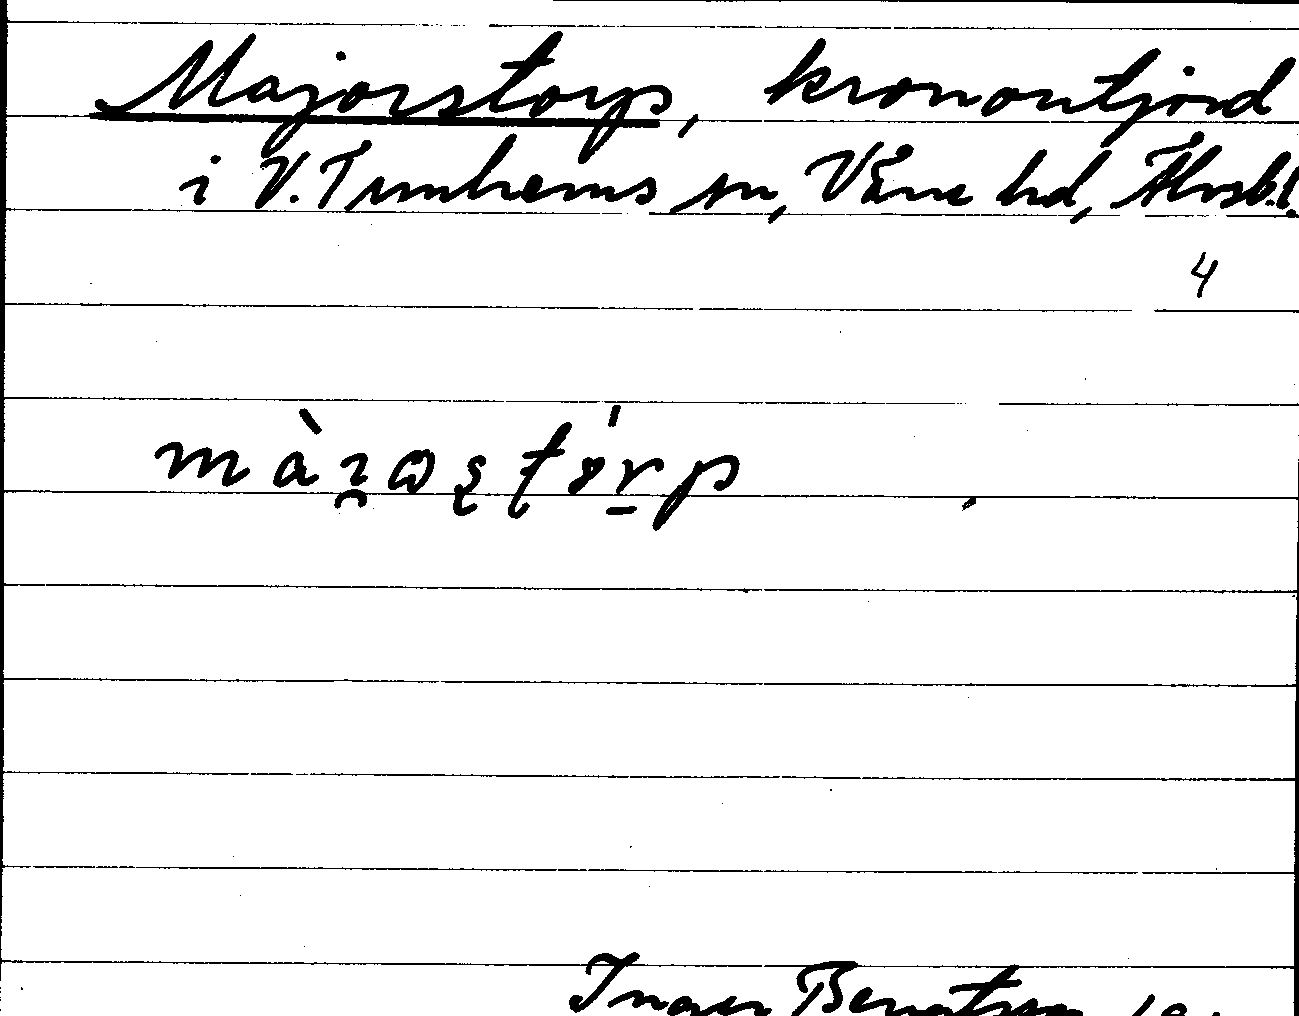 Majorstorp, kronoutjord
i V. Tunhems sn, Väne hd, Älvsb.l.
4
màꞮωʂʈórp
Inger Bengtsson